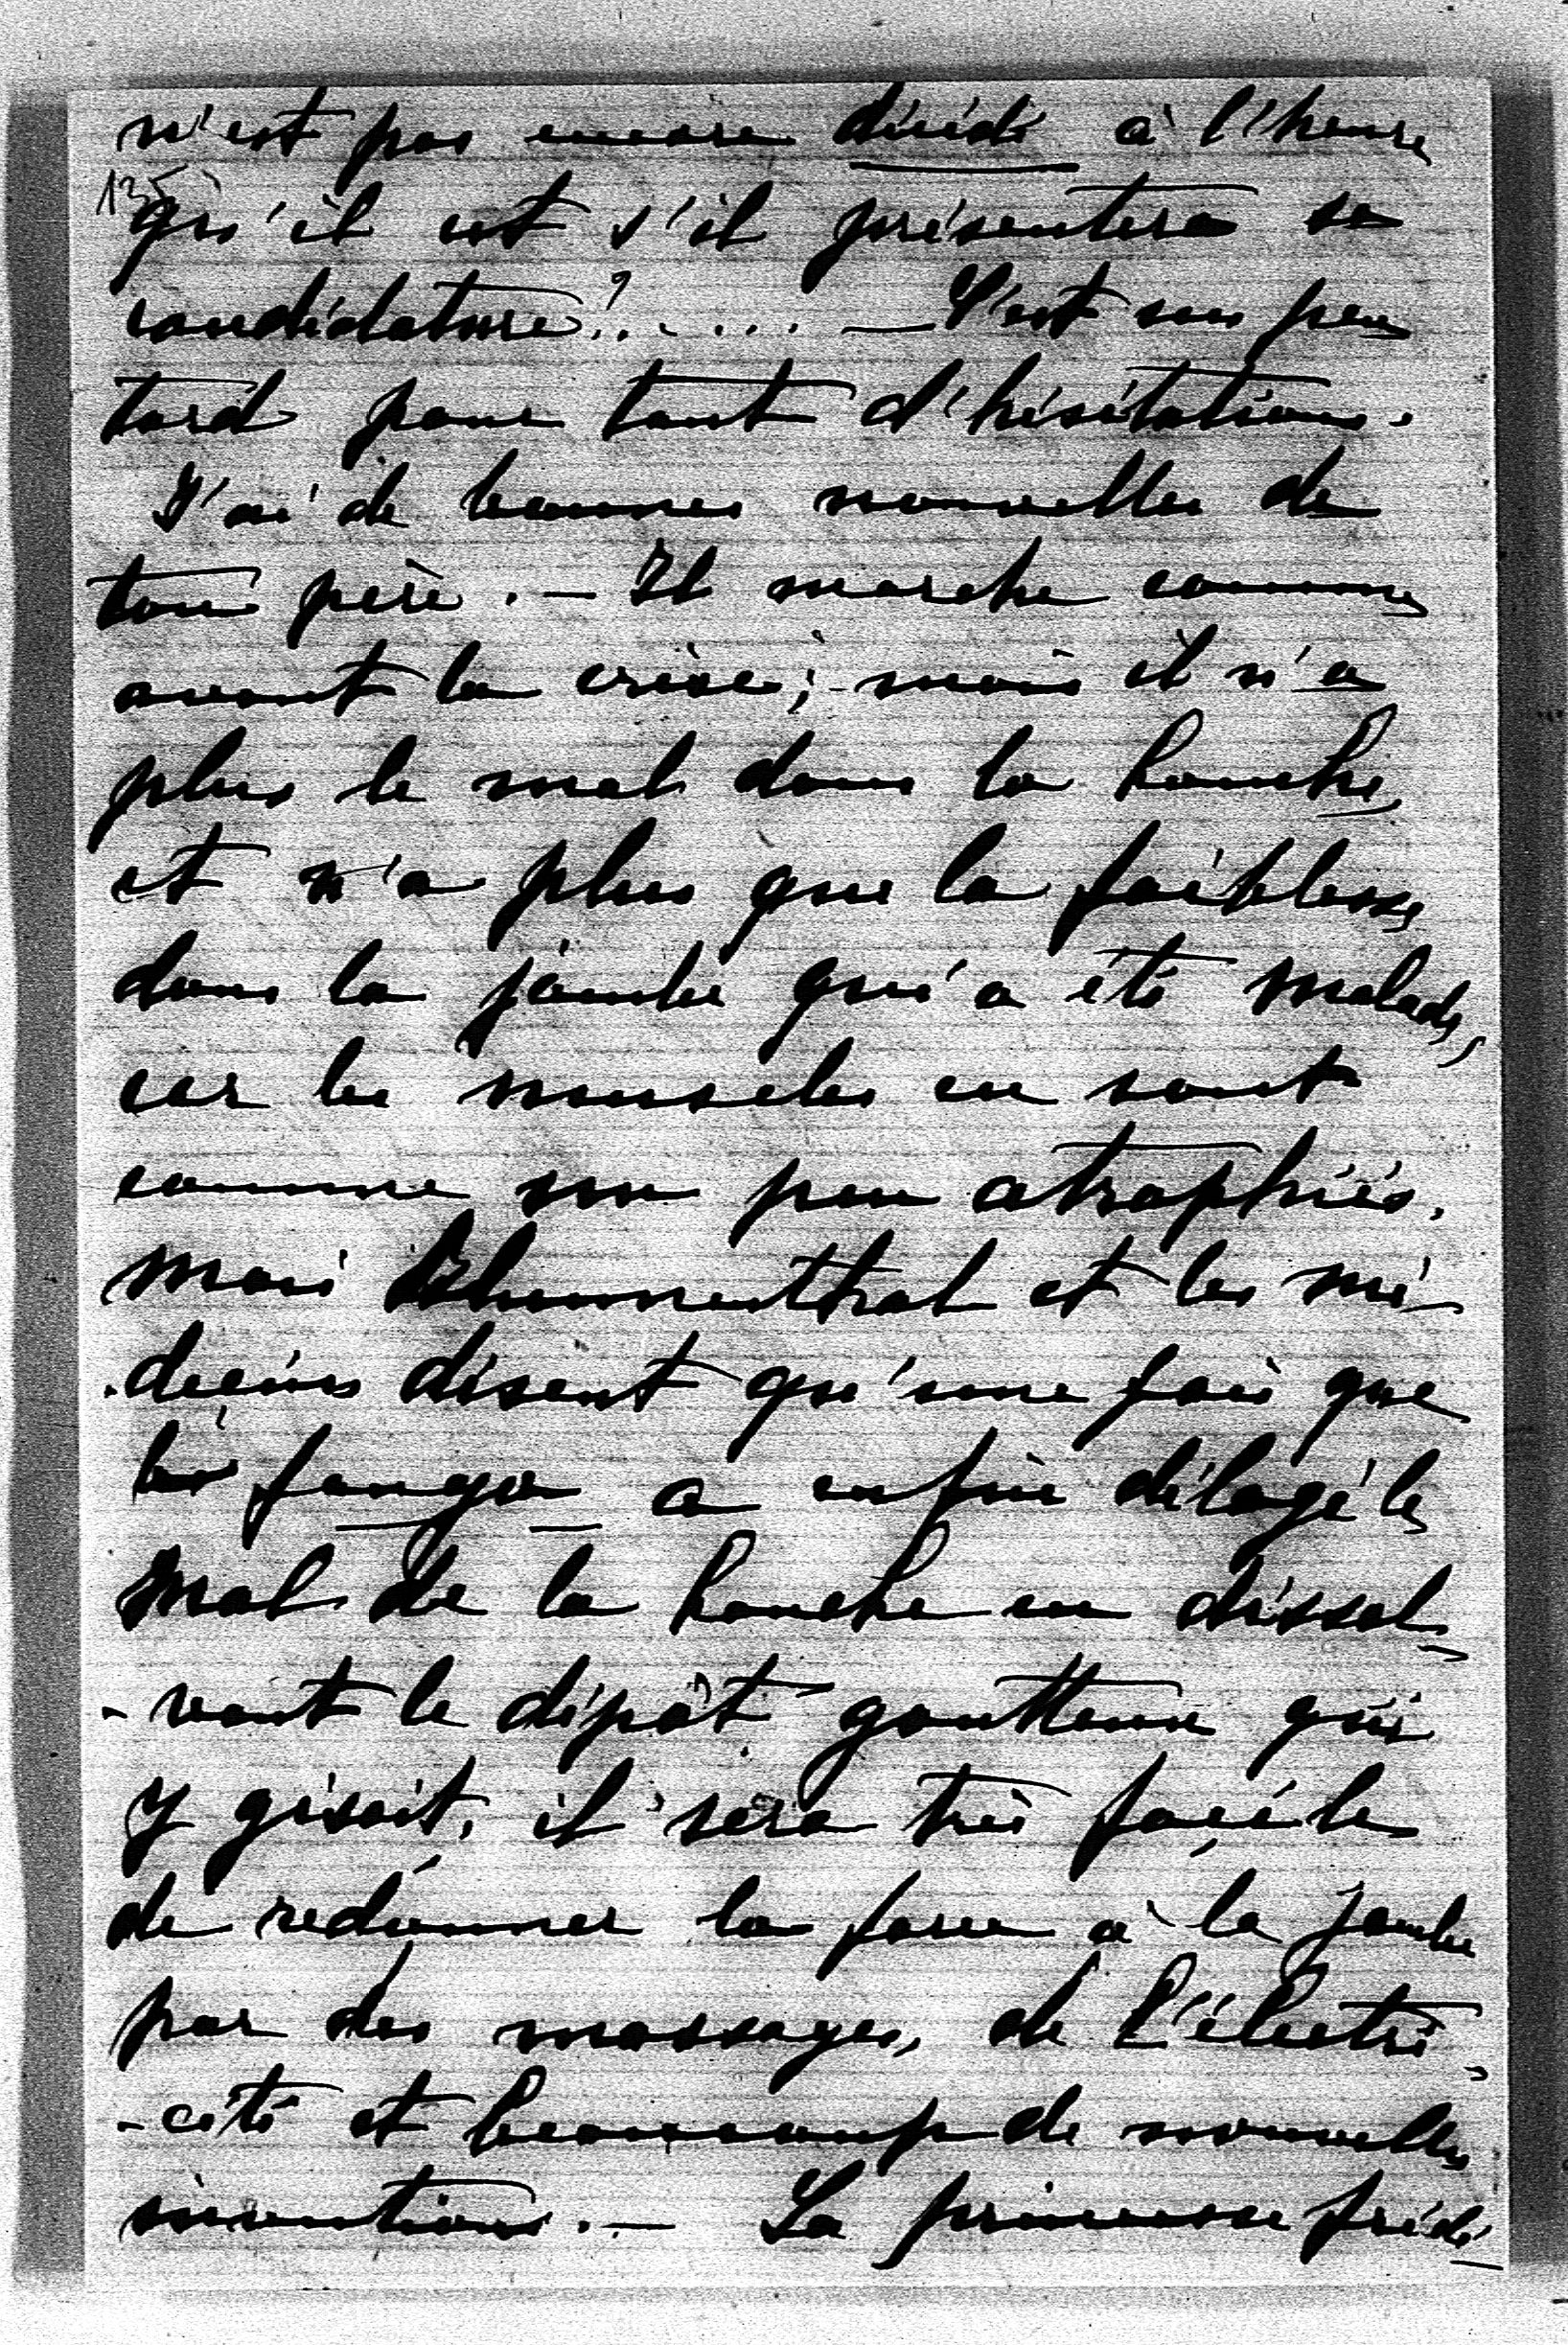 n'est pas encore décidé à l'heure
135
qu'il est s'il présentera sa
candidature?..... — C'est un peu
tard pour tant d'hésitations.
J'ai de bonnes nouvelles de
ton père. — Il marche comme
avant la crise; mais il n'a
plus le mal dans la hanche
et n'a plus que la faiblesse
dans la jambe qui a été malade,
car les muscles en sont
comme un peu atrophiés.
Mais Blumenthal et les mé-
-decins disent qu'une fois que
les fango a enfin délogé le
mal de la hanche en dissol-
-vant le dépôt goutteux qui
y gisait, il sera très facile
de redonner la force à la jambe
par des massages, de l'électri-
-cité et beaucoup de nouvelles
inventions. — La princesse Frédé-